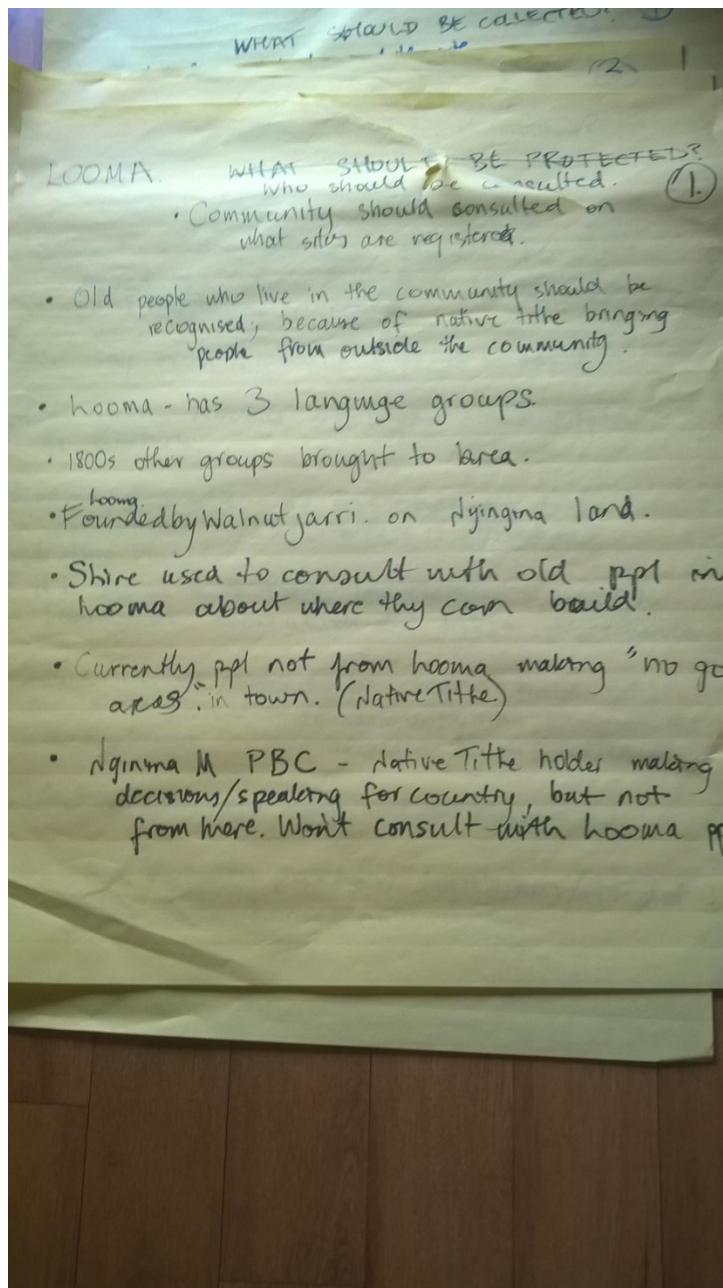 WHAT SHOULD BE COLLECTED?
2
LOOMA. WHAT SHOULD BE PROTECTED?
Who should be consulted. 1.
• Community should consulted on
what sites are registered.
• Old people who live in the community should be
recognised, because of native title bringing
people from outside the community.
• Looma - has 3 languge groups.
• 1800s other groups brought to area.
Looma
• Founded by Walnutjarri. on Nyingina land.
• Shire used to consult with old ppl in
Looma about where thy can build.
• Currently ppl not from Looma making "no go
areas". in town. (Native Title)
• Nginma M PBC - Native Title holder making
decisions/speaking for country, but not
from here. Won't consult with Looma